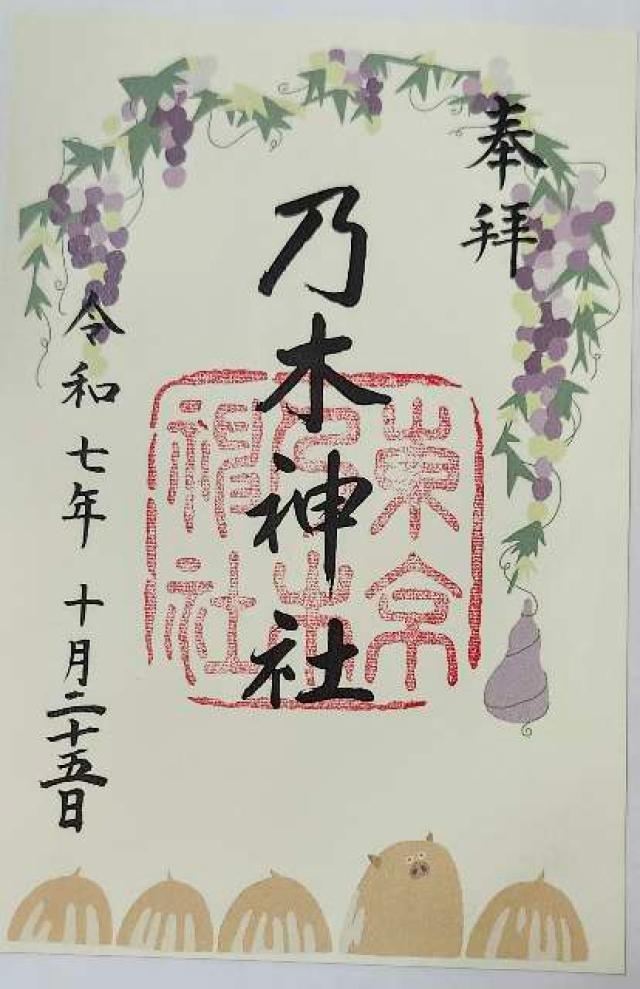 奉拝
乃木神社
東京乃木神社
令和七年十月二十五日